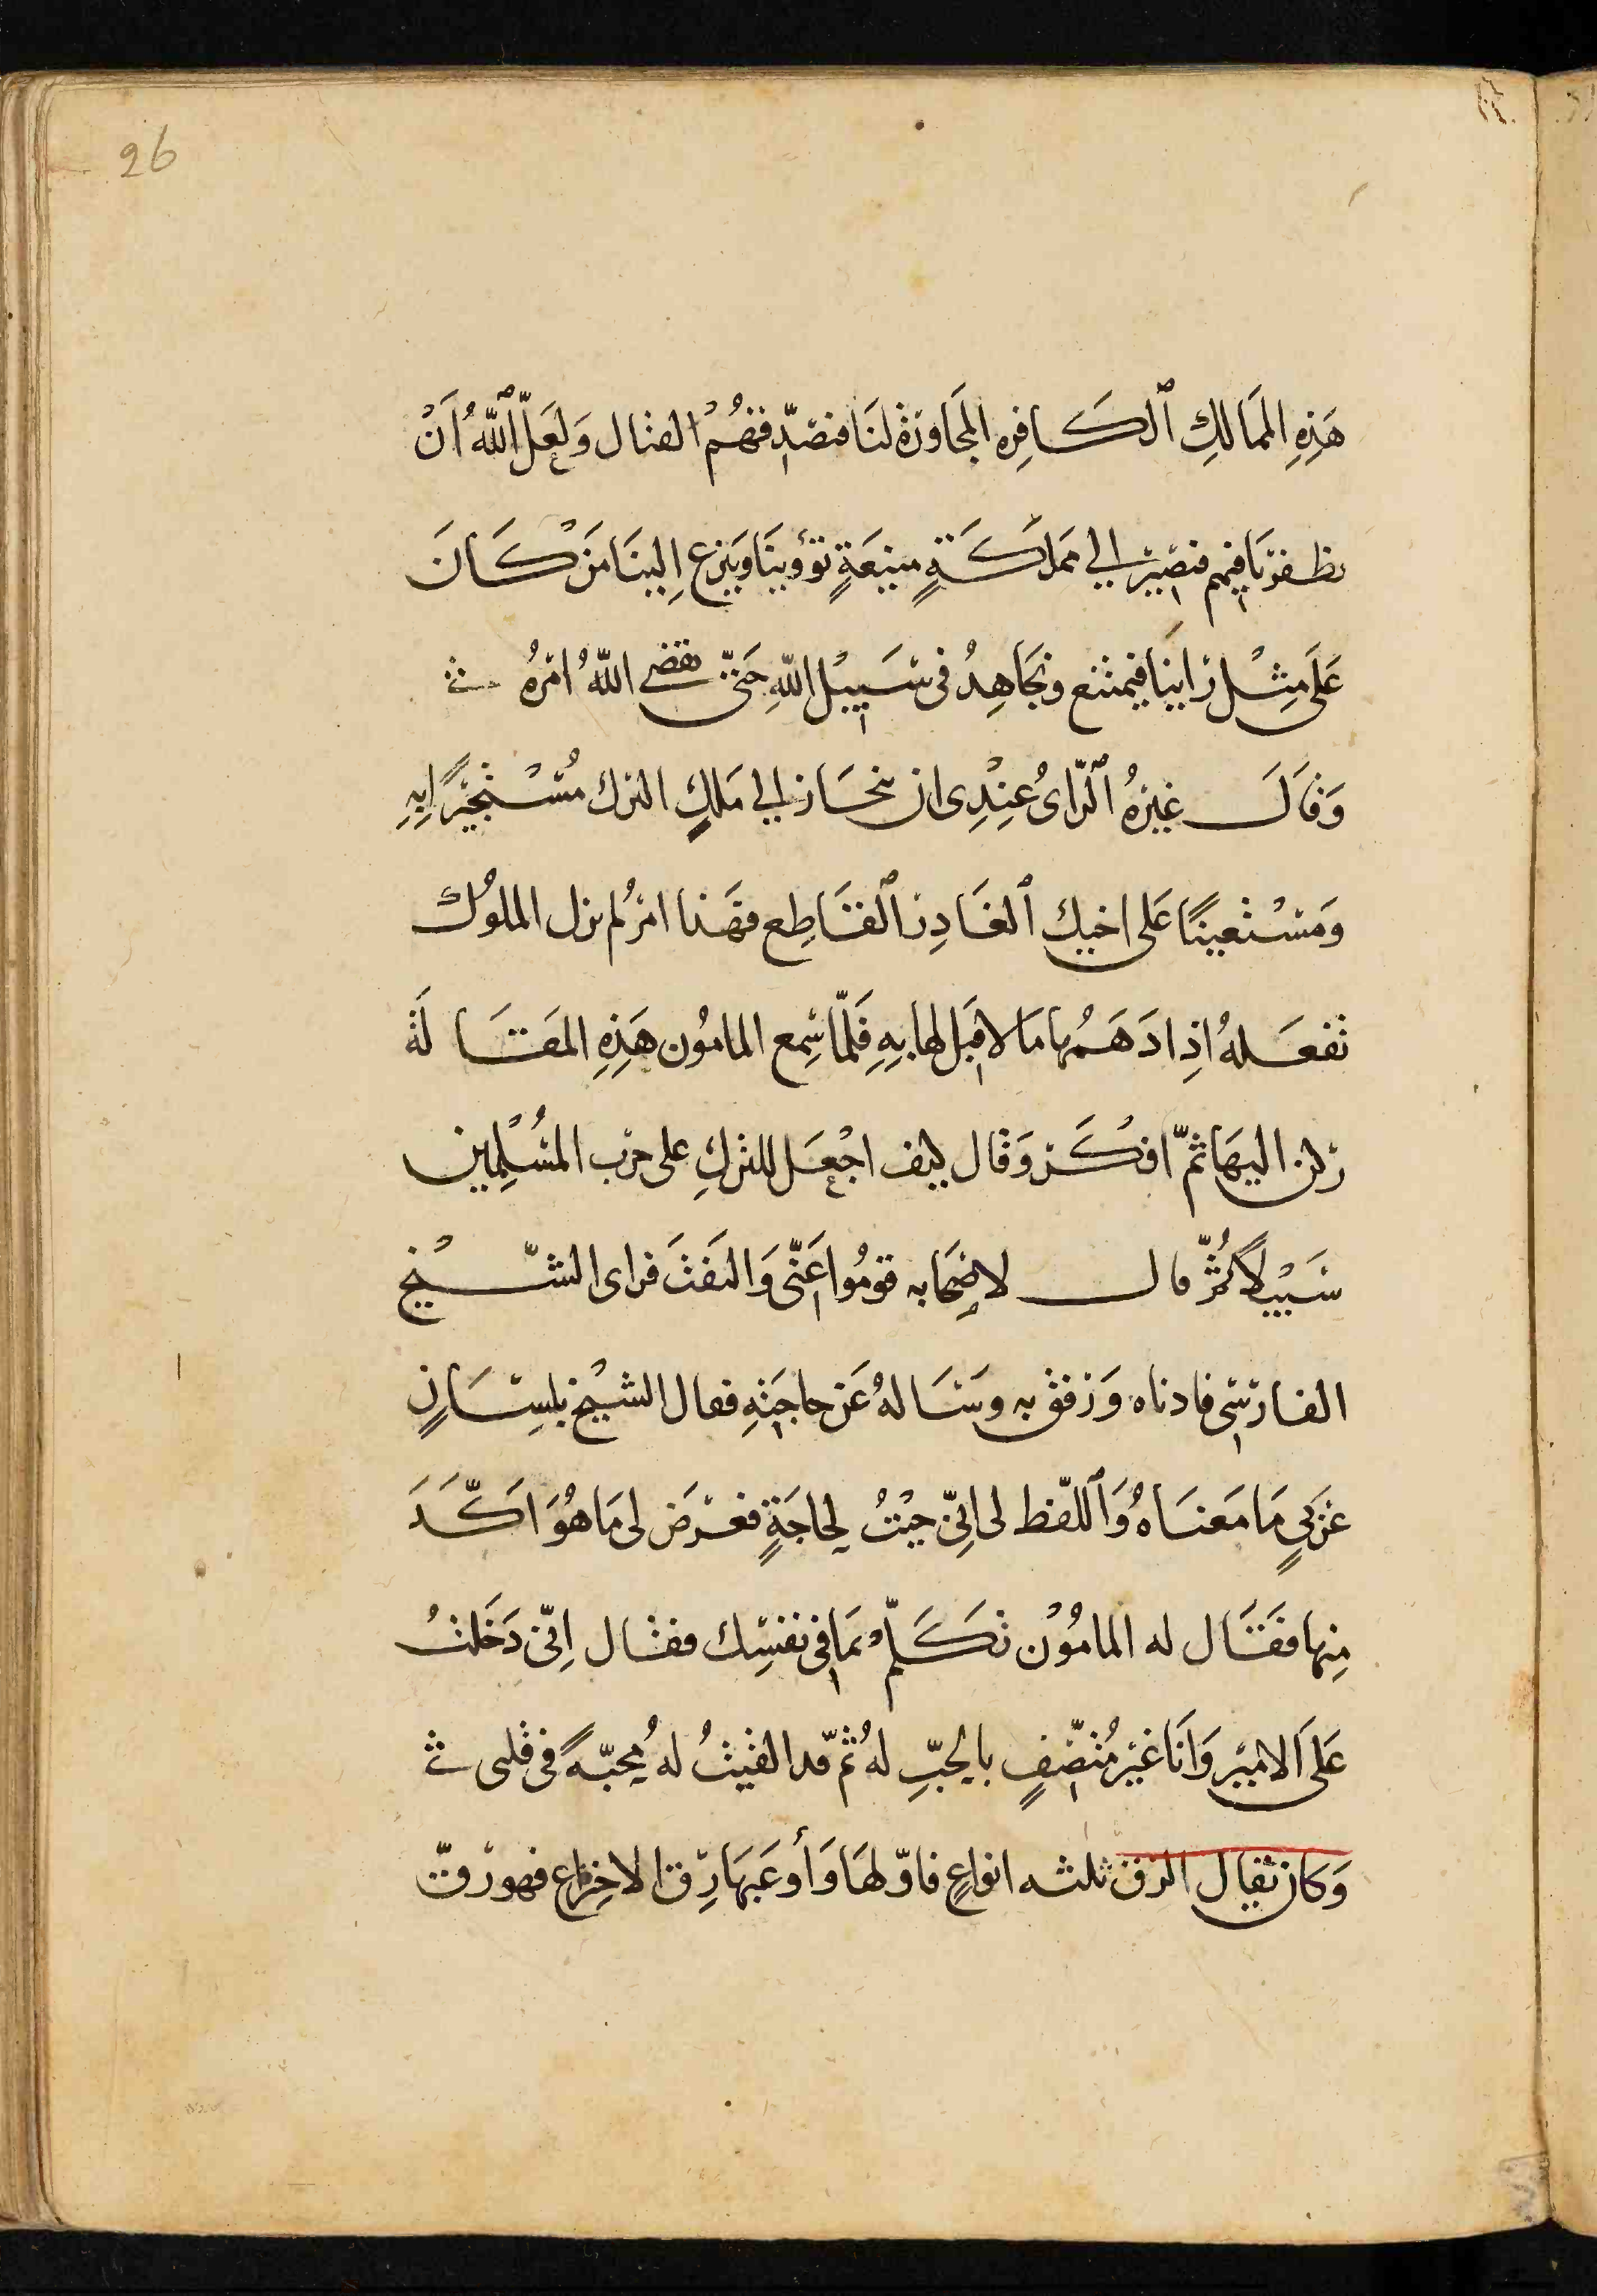 26
هَذِهِ الممَالكِ ٱلكَافِره المجَاوزة لنَا فنصدّقهُمُ القتال وَلعَلّ ٱللّهُ اَنْ
يظفرنَا فيهم فنصيْر الي مملكَةٍ منيعَةٍ تؤوينَا وينزع اِلينَا مَنْ كَانَ
عَلَى مِثْل رَاينَا فيمتنع ونجَاهِدُ فى سَبيْل اللّهِ حَتّى يقضي اللّهُ امْرهُ
وَقاَلَ غيرُهُ ٱلرّاىُ عِنْدِى ان ننحَاز الي مَلكِ الترك مُسْتجيْرًا بِهِ
وَمسْتعينًا عَلى اخيك ٱلغَادِر ٱلقَاطِع فهَذا امرٌ لم تزل الملوُك
تفعَلهُ اذِا دَهَمُهَا مَا لا قبَل لها بِهِ فَلمّا سَمِع المامُون هَذِهِ المقَالَة
ركن اليهَا ثمّ افْكَر وَقال كيف اجْعَل للتركِ على حرْب المسُلِمين
سَبيْلاً ثمُّ قال لاصْحَابه قوموُا عَنّى وَالتفَتَ فراى الشّيْخ
الفارسى فادناه وَرَفق به وسَالهُ عَن حاجَتِهِ فقال الشيْخ بلِسَانٍ
عَربيٍ مَا مَعنَاهُ وَٱللّفظ لى انِّى جيْتُ لحِاجَةٍ فعرَض لى مَا هُوَ اَكّدَ
مِنها فقَال له المامُوْن تكَلّمْ بمَا فى نفسِك فقال اِنّى دَخَلتُ
عَلَى الامْير وَانَا غيْر مُتصِّفٍ بالحُبِّ لهُ ثمّ قد القيتُ لهُ محُبّةً فى قلبى
وَكان يقال الرق ثلثه انواعٍ فاوّلهَا وَأوعَبهَا رِقّ الاخِتراع فهو رقّ